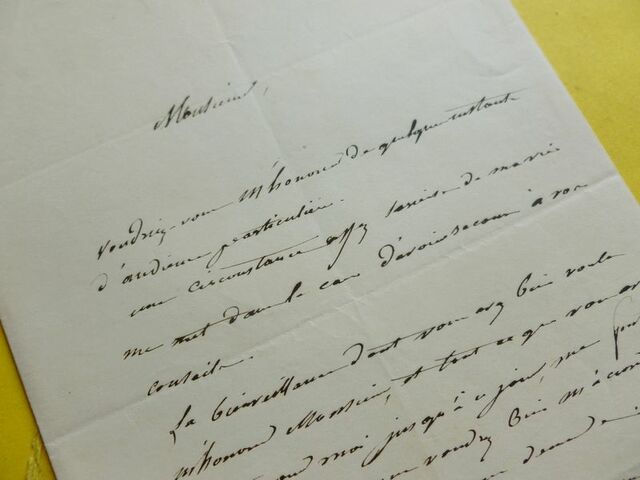 Monsieur,
voudriez-vous m'honorer de quelques instants
d'audience particulière.
une circonstance assez sérieuse de ma vie
me met dans le cas d'avoir recours à vos
conseils.
La bienveillance dont vous avez bien voulu
m'honorer Monsieur, et tout ce que vous
moi jusqu'à ce jour, me font
voudrez bien